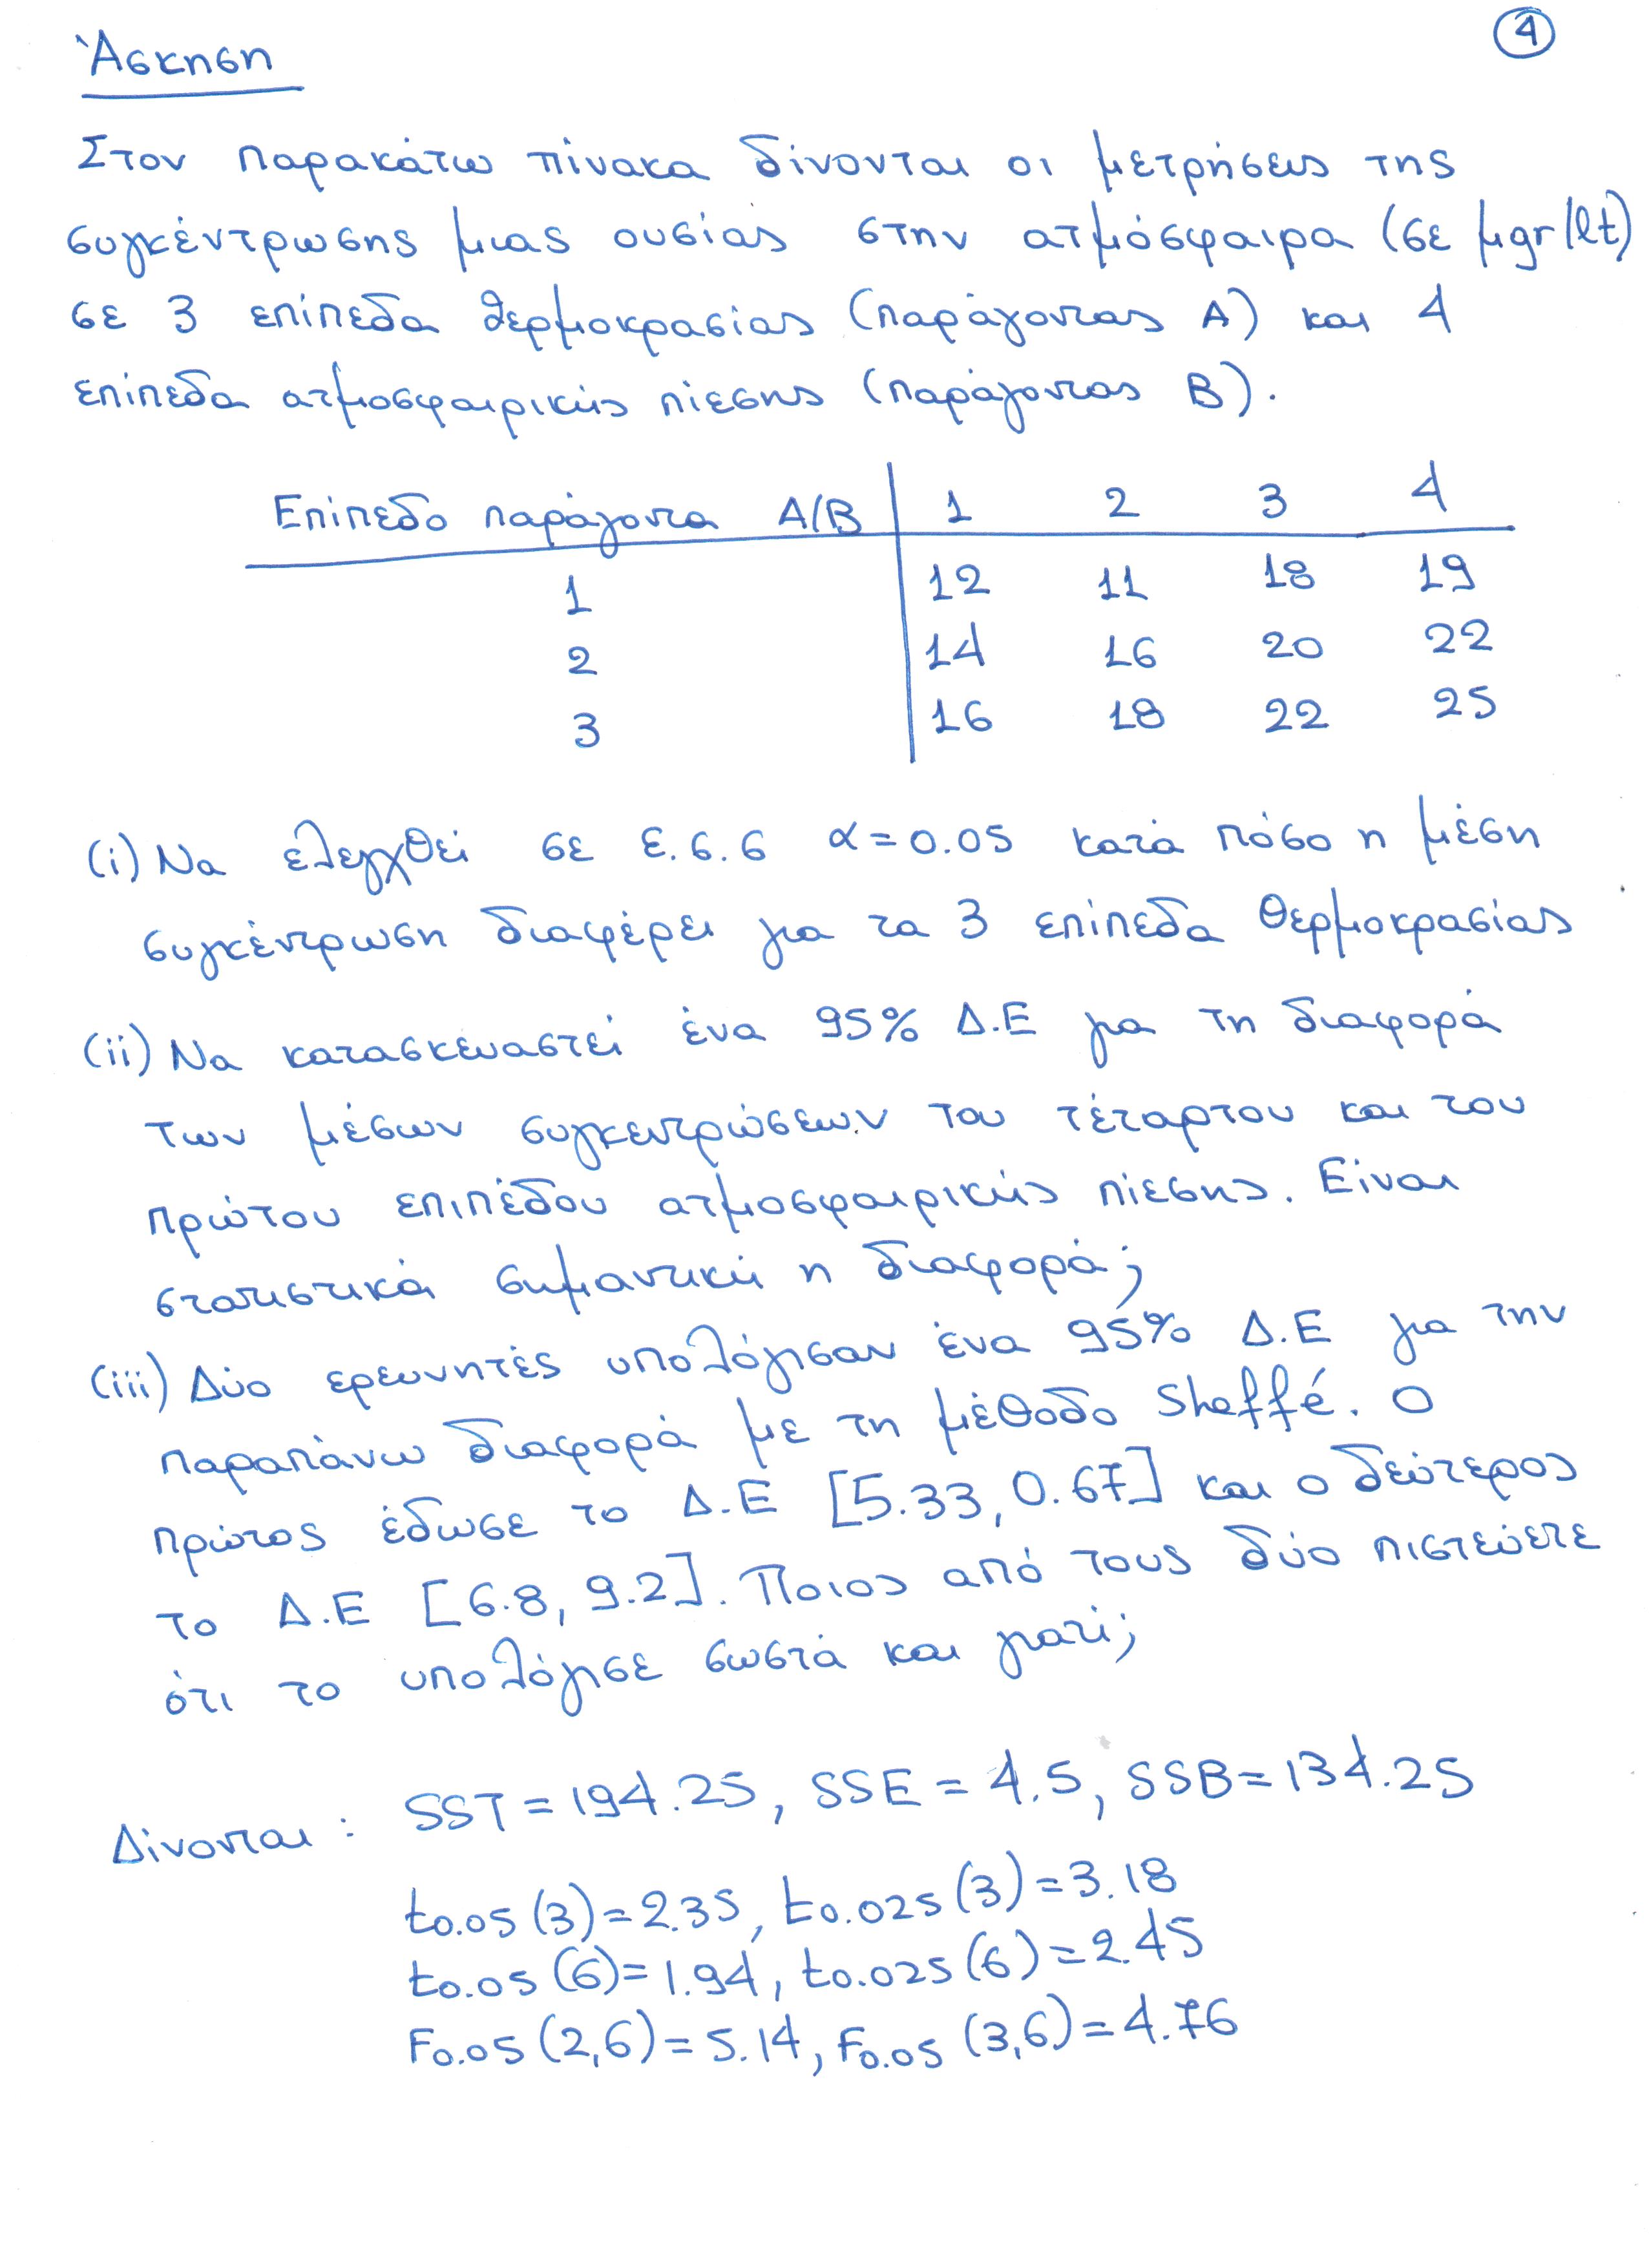 ④
Άσκηση
Στον παρακάτω πίνακα δίνονται οι μετρήσεις της
συγκέντρωσης μιας ουσίας στην ατμόσφαιρα (σε μgr/lt)
σε 3 επίπεδα θερμοκρασίας (παράγοντας Α) και 4
επίπεδα ατμοσφαιρικής πίεσης (παράγοντας Β).
Επίπεδο παράγοντα Α/Β 1 2 3 4
1 12 11 18 19
2 14 16 20 22
3 16 18 22 25
(i) Να ελεγχθεί σε ε.σ.σ α=0.05 κατά πόσο η μέση
συγκέντρωση διαφέρει για τα 3 επίπεδα θερμοκρασίας
(ii) Να κατασκευαστεί ένα 95% Δ.Ε για τη διαφορά
των μέσων συγκεντρώσεων του τέταρτου και του
πρώτου επιπέδου ατμοσφαιρικής πίεσης. Είναι
στατιστικά σημαντική η διαφορά;
(iii) Δύο ερευνητές υπολόγισαν ένα 95% Δ.Ε για την
παραπάνω διαφορά με τη μέθοδο Sheffé. Ο
πρώτος έδωσε το Δ.Ε [5.33, 0.67] και ο δεύτερος
το Δ.Ε [6.8, 9.2]. Ποιος από τους δύο πιστεύετε
ότι το υπολόγισε σωστά και γιατί;
Δίνονται: SST=194.25, SSE=4.5, SSB=134.25
t0.05(3)=2.35, t0.025(3)=3.18
t0.05(6)=1.94, t0.025(6)=2.45
F0.05(2,6)=5.14, F0.05(3,6)=4.76